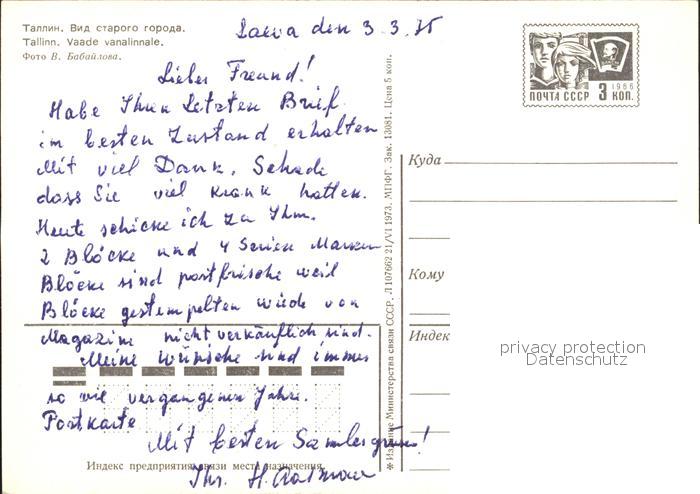 Таллин. Вид старого города.
Tallinn. Vaade vanalinnale.
Фото В. Бабайлова.
den 3.3.75
Lieber Freund!
Habe Ihren Letzten Brief
im besten Zustand erhalten
Mit viel Dank. Schade
dass Sie viel Krank hatten.
Heute schicke ich zu Ihm.
2 Blöcke und 4 Serien Marken
Blöcke sind postfrische weil
Blöcke gestempelten wiede von
Magazine nicht verkäuflich sind.
Meine wünsche sind immer
so wie vergangenen Jahre.
Postkarte
Mit besten Sammlergrüss!
Ihr. H.
ПОЧТА СССР 3 КОП.
1966
Куда
Кому
Индекс
privacy protection
Datenschutz
Индекс предприятия связи места назначения
Издание Министерства связи СССР. Л107662 21/VI 1973. МПФГ. Зак. 13081. Цена 5 коп.